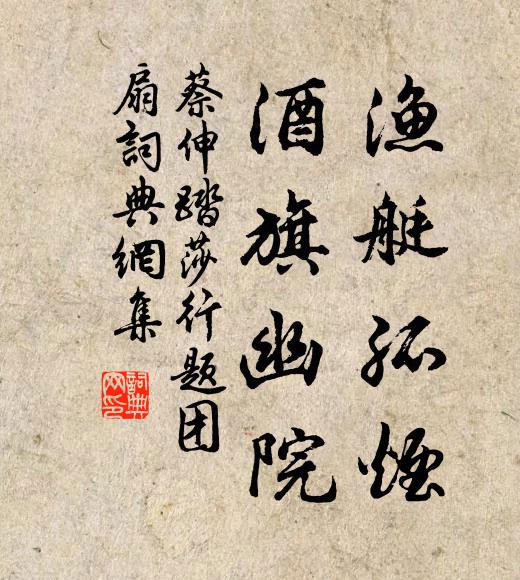 渔艇孤煙
酒旗幽院
蔡伸踏莎行题团
扇詞典網集
詞典
网印